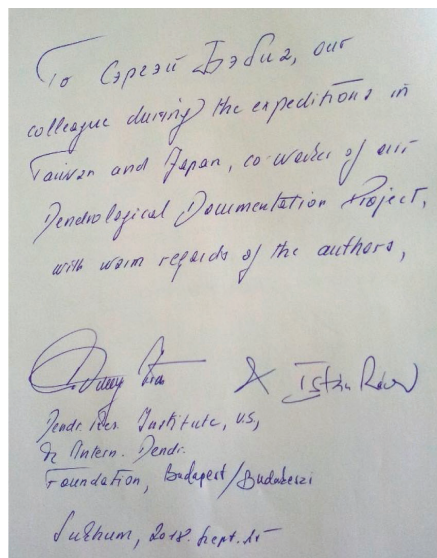 To Сэргэй Бэбиа, our
colleague during the expeditions in
Taiwan and Japan, co-worker of our
Dendrological Documentation Project,
with warm regards of the authors,
& István Rácz
Dendr. Res. Institute, U.S,
& Intern. Dendr.
Foundation, Budapest/Budakeszi
Sukhum, 2018. Sept. 15